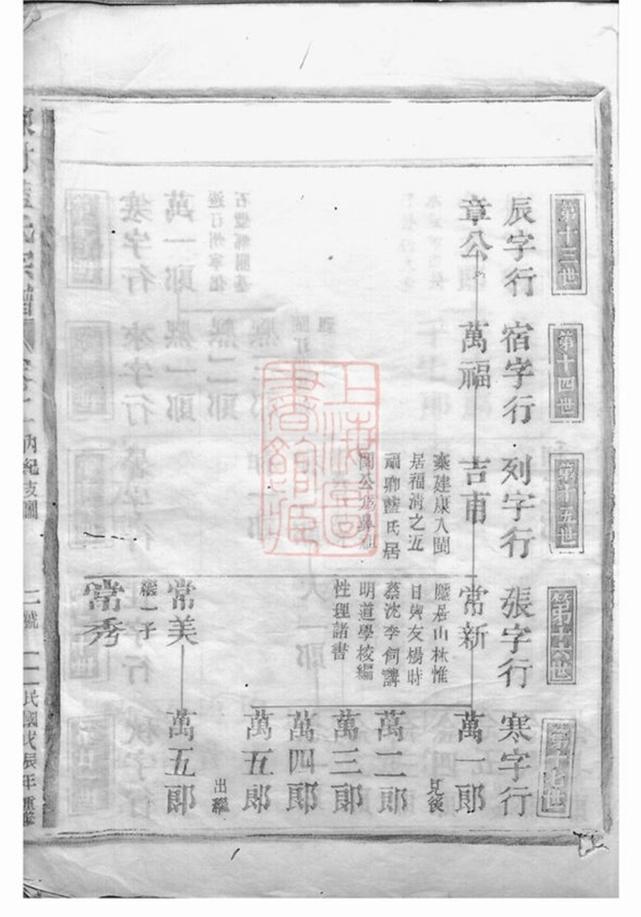 第十三世
辰字行
章公
第十四世
宿字行
萬福
第十五世
列字行
吉甫
棄建康入閩
居福清之五
福鄉藍氏居
閩公為鼻祖
第十六世
張字行
常新
隱居山林惟
日與友楊時
蔡沈李侗講
明道學校編
性理諸書
常美
繼一子
常秀
第十七世
寒字行
萬一郎
見後
萬二郎
萬三郎
萬四郎
萬五郎
出繼
萬五郎
藍氏宗譜
卷之一
二
民國戊辰年重
上海圖
書館藏